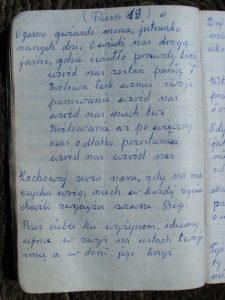 (Pieśń 19) o
O jasna gwiazdo mena, jutrzenko
naszych dni, O uwidź nas drogą
jasną, gdzie światło prawdy lśni
wśród nas zostań panią i
Królową Tron wznieś swoje
panowanie wśród nas
wśród nas niech twe
Królowanie aż po wieczny
czas o Matko pozostaniesz
wśród nas wśród nas

Zachowaj serca nasze, gdy na nie
czycha wróg, niech w każdej życia
chwili zwycięża zawsze Bóg.

Przez ciebie ku wyżynom, idziemy
ufnie w zwyż na ustach Twoje
imię a w dłoni jego krzyż